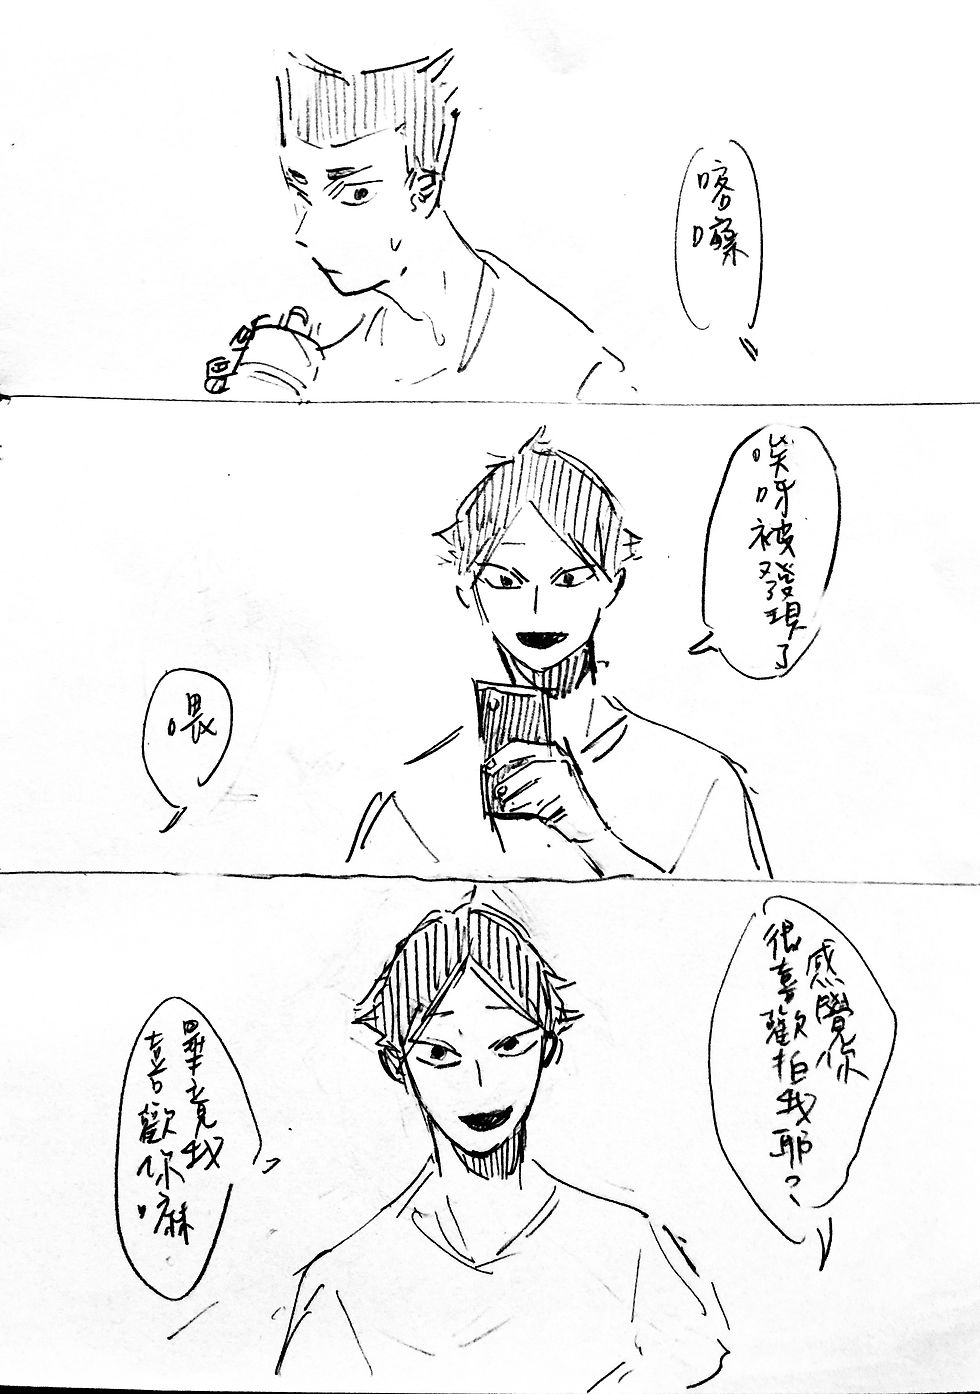 喀嚓
唉呀被發現了
喂
感覺你
很喜歡拍我耶？
畢竟我
喜歡你嘛